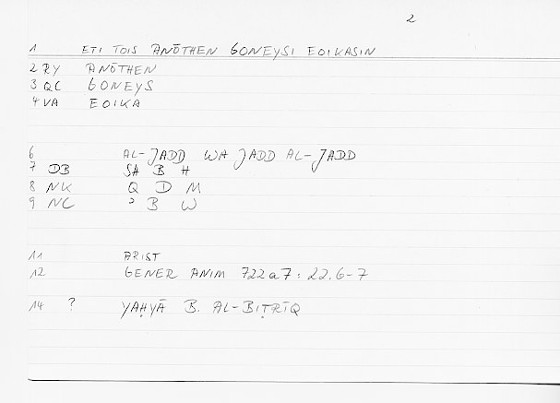 2
1 ETI TOIS ANŌTHEN GONEYSI EOIKASIN
2 RY ANŌTHEN
3 QC GONEYS
4 VA EOIKA
6 AL-JADD WA JADD AL-JADD
7 DB ṢA B H
8 NK Q D M
9 NC ʾ B W
11 ARIST
12 GENER ANIM 722a7: 22.6-7
14 ? YAḤYĀ B. AL-BIṬRĪQ